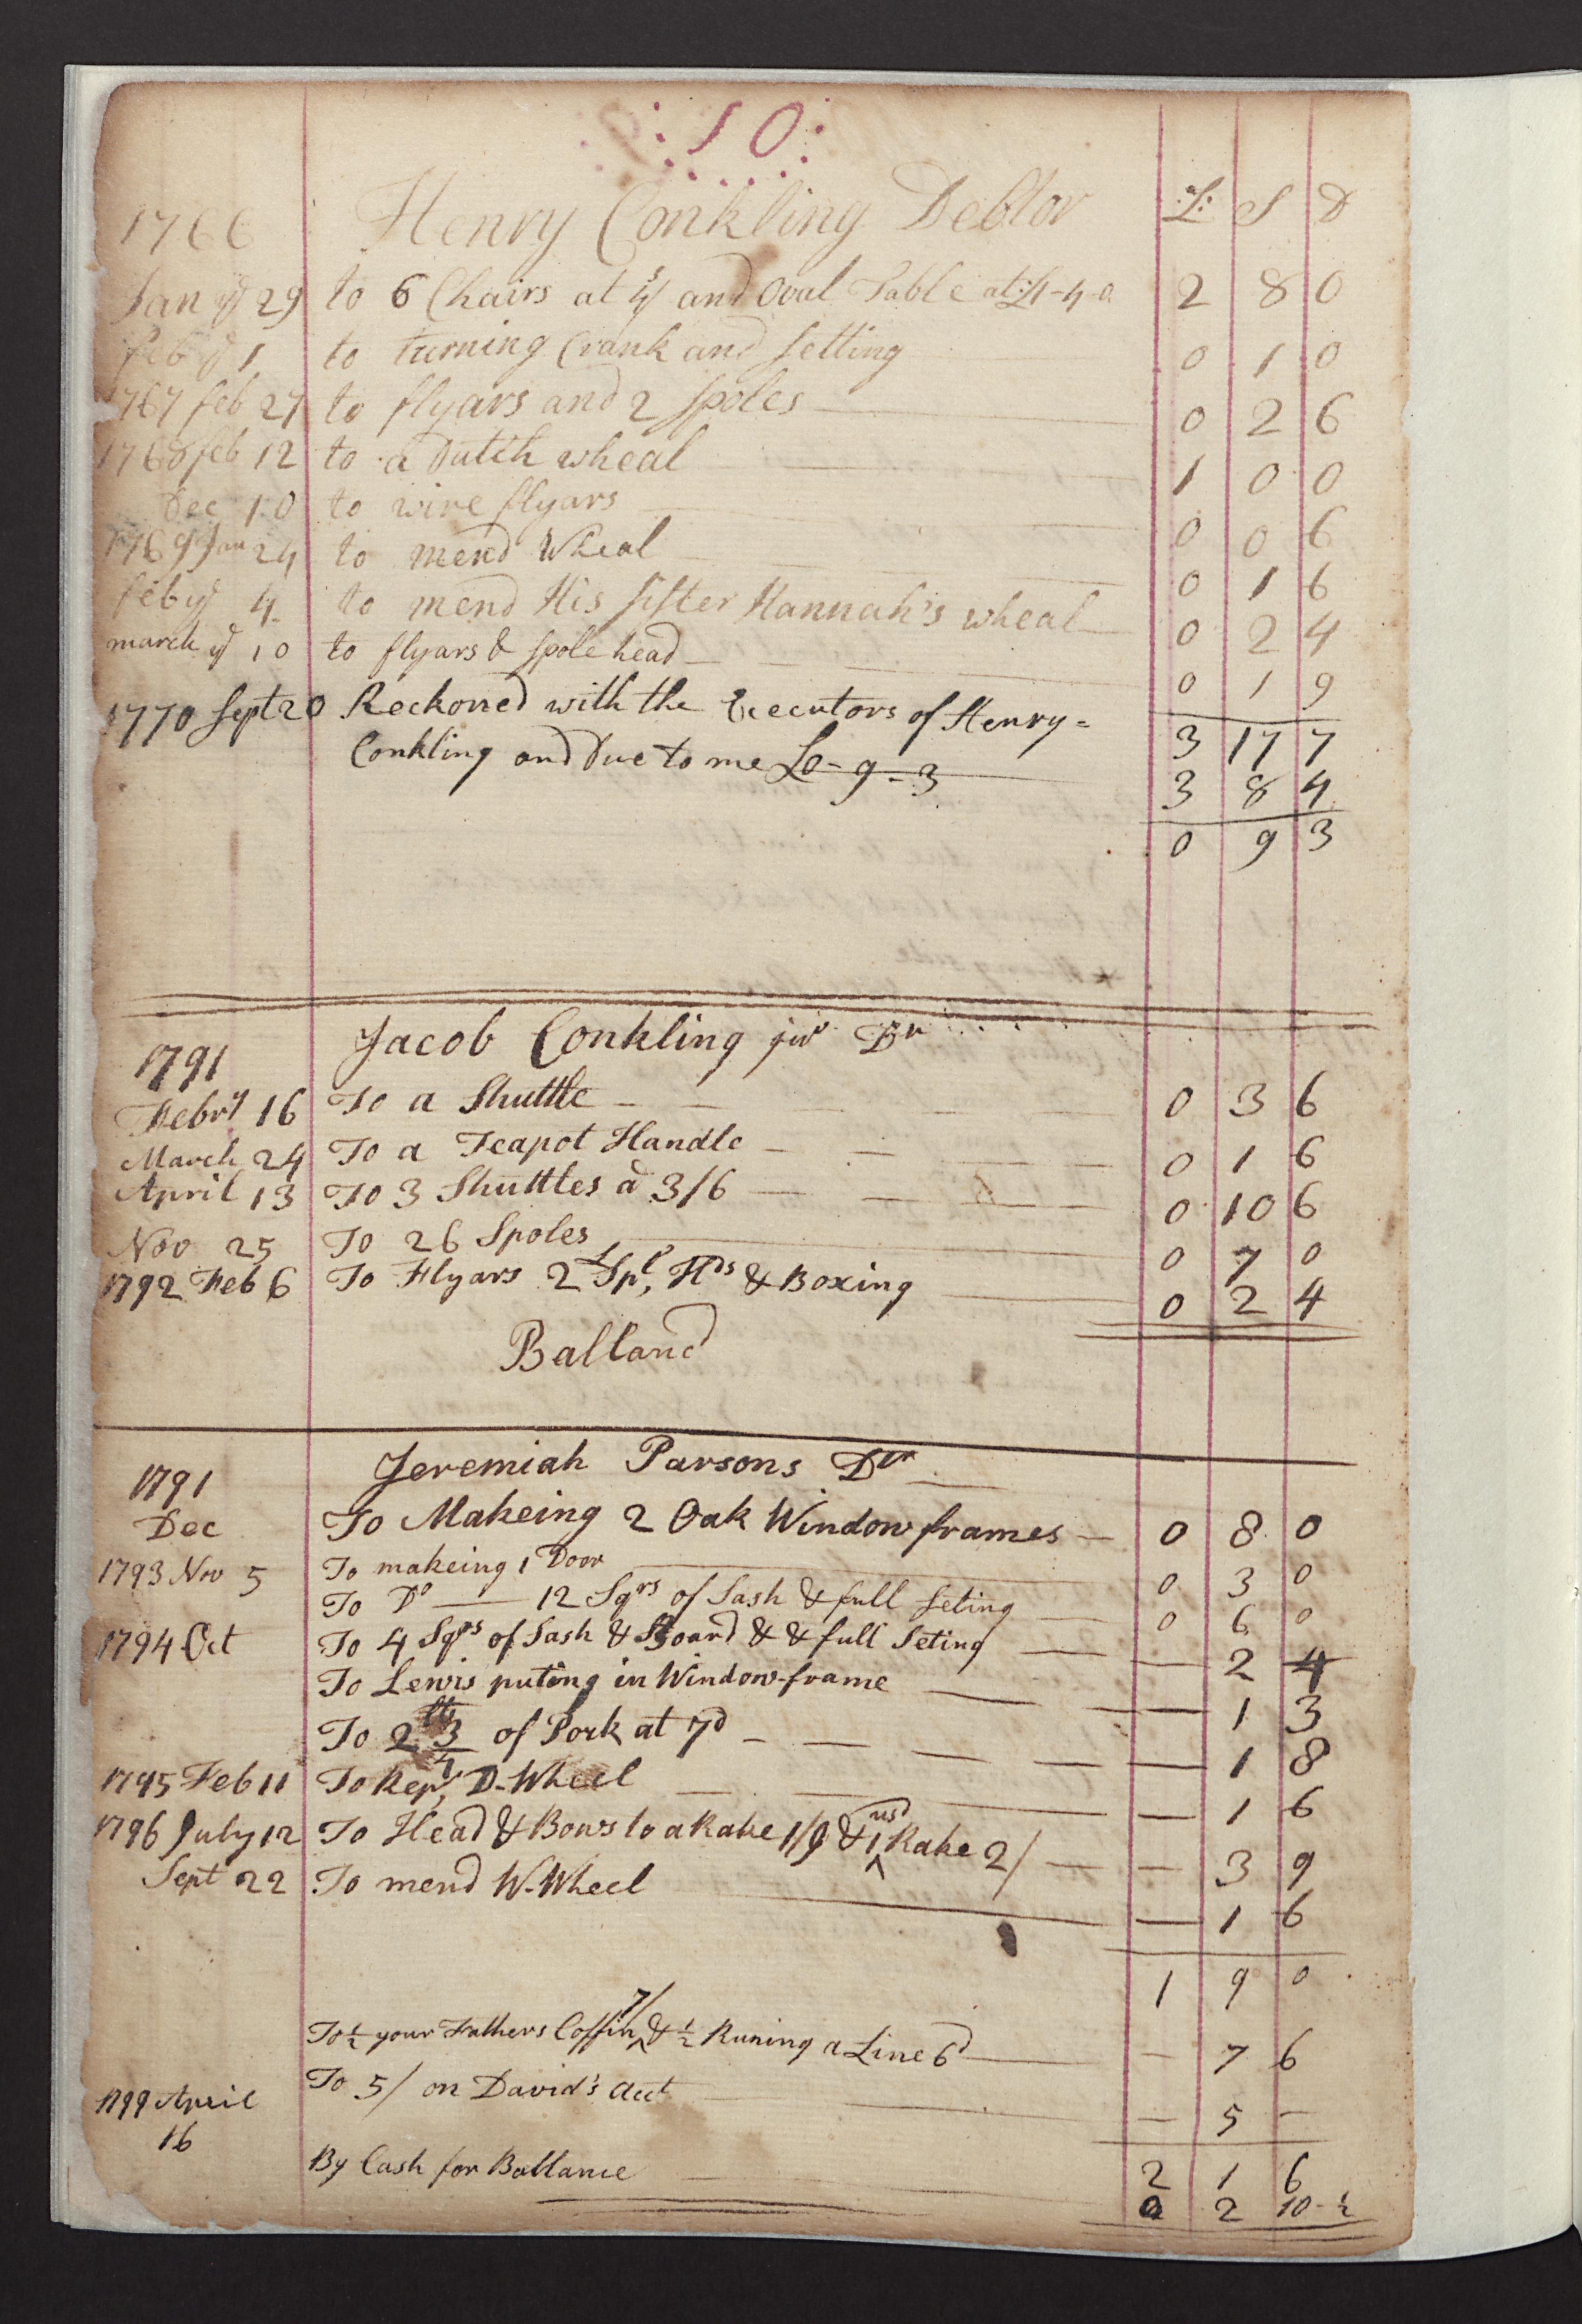 :10:
1766 Henry Conkling Debtor :L: S D
Jan ye 29 to 6 Chairs at 4/ and Oval Table at £1-4-0 2 8 0
Feb ye 1 to turning Crank and setting 0 1 0
1767 feb 27 to flyars and 2 spoles 0 2 6
1768 feb 12 to a Dutch wheal 1 0 0
Dec 10 to wire flyars 0 0 6
1769 Jan 24 to mend Wheal 0 1 6
feb ye 4 to mend His sister Hannah's wheal 0 2 4
march ye 10 to flyars & spole head 0 1 9
1770 Sept 20 Reckoned with the Executors of Henry= 3 17 7
Conkling and Due to me £0-9-3 3 8 4
0 9 3
1791 Jacob Conkling jur Dr
Febry 16 To a Shuttle 0 3 6
March 24 To a Teapot Handle 0 1 6
April 13 To 3 Shuttles a 3/6 0 10 6
Nov 25 To 26 Spoles 0 7 0
1792 Feb 6 To Flyars 2 Spl, Hds & Boxing 0 2 4
Balland
1791 Jeremiah Parsons Dr
Dec To Makeing 2 Oak Window frames 0 8 0
1793 Nov 5 To makeing 1 Door 0 3 0
To Do 12 Sqrs of Sash & full seting 0 6 0
1794 Oct To 4 Sqrs of Sash & Board & & full Seting — 2 4
To Lewis puting in Window-frame — 1 3
To 2 3/4 lb of Pork at 7d — 1 8
1795 Feb 11 To Repr, D-Wheel — 1 6
1796 July 12 To Head & Bows to a Rake 1/9 & 1 usd Rake 2/ — 3 9
Sept 22 To mend W-Wheel — 1 6
1 9 0
To 1/2 your Fathers Coffin 7/ & 1/2 Runing a Line 6d — 7 6
To 5/ on David's Acct — 5 —
1799 April
16
By Cash for Ballance 2 1 6
0 2 10-1/2